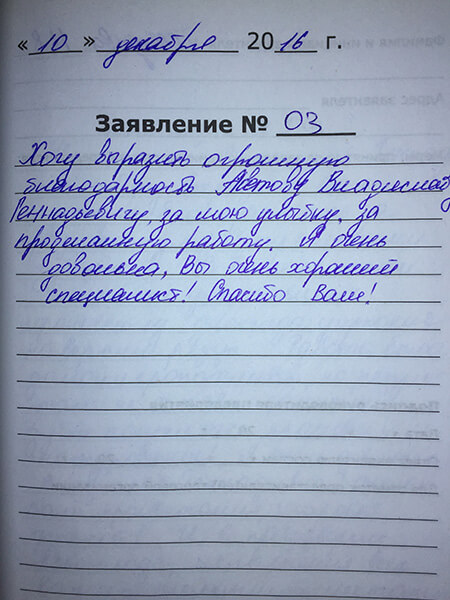 « 10 » декабря 2016 г.
Заявление № 03
Хочу выразить огромную
благодарность Аветову Владиславу
Геннадьевичу, за мою улыбку, за
проделанную работу. Я очень
довольна, Вы очень хороший
специалист! Спасибо Вам!